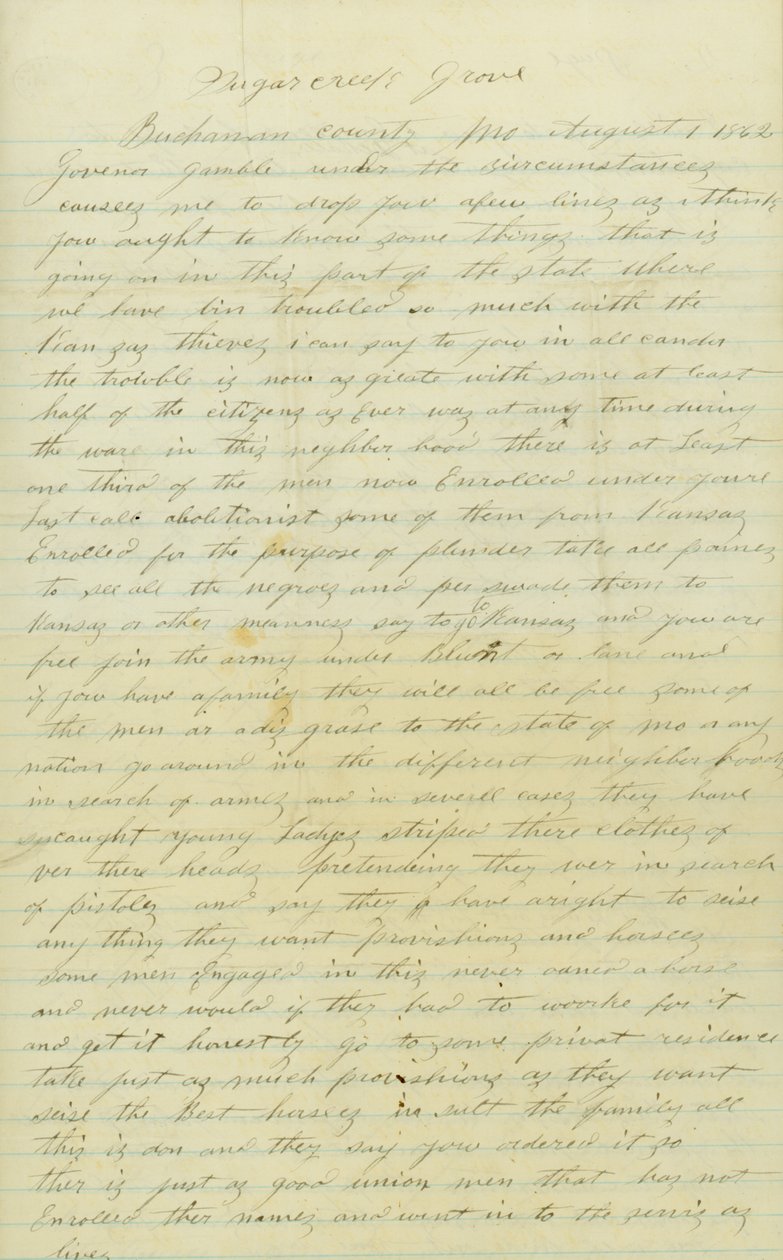 Sugarcreek Grove
Buchanan county Mo August 1 1862
Govenor gamble under the circumstancez
causez me to drop yow afew linez az i think
yow ought to know some thingz that iz
going on in thiz part of the state Where
we have bin troubled so much with the
Kan zaz thievez i can say to yow in all candor
the trowble iz now az greate with some at least
half of the citizenz az Ever waz at any time during
the ware in thiz neighber hood there iz at Least
one third of the men now Enrolled under youre
Last call abolitionist some of them from Kansaz
Enrolled for the purpose of plunder take all painez
to see all the negroez and per swade them to
Kansaz or other meanness say to go to Kansaz and yow are
free join the army under Blunt or lane and
if yow have afamily they will all be free some of
the men ar adiz grase to the state of mo or any
nation go around in the different neighber hoods
in search of armz and in severel casez they have
caught young Ladyez striped there clothez of
ver there headz pretendeing they wer in search
of pistolz and say they have aright to seise
any thing they want provishionz and horsez
some men Engaged in thiz never owned a horse
and never would if they had to woorke for it
and get it honestly go to some privat residence
take just az much provishionz az they want
seise the Best horsez in sult the family all
thiz iz don and they say yow ordered it so
ther iz just az good union men that haz not
Enrolled ther namez and went in to the serviz az
livez